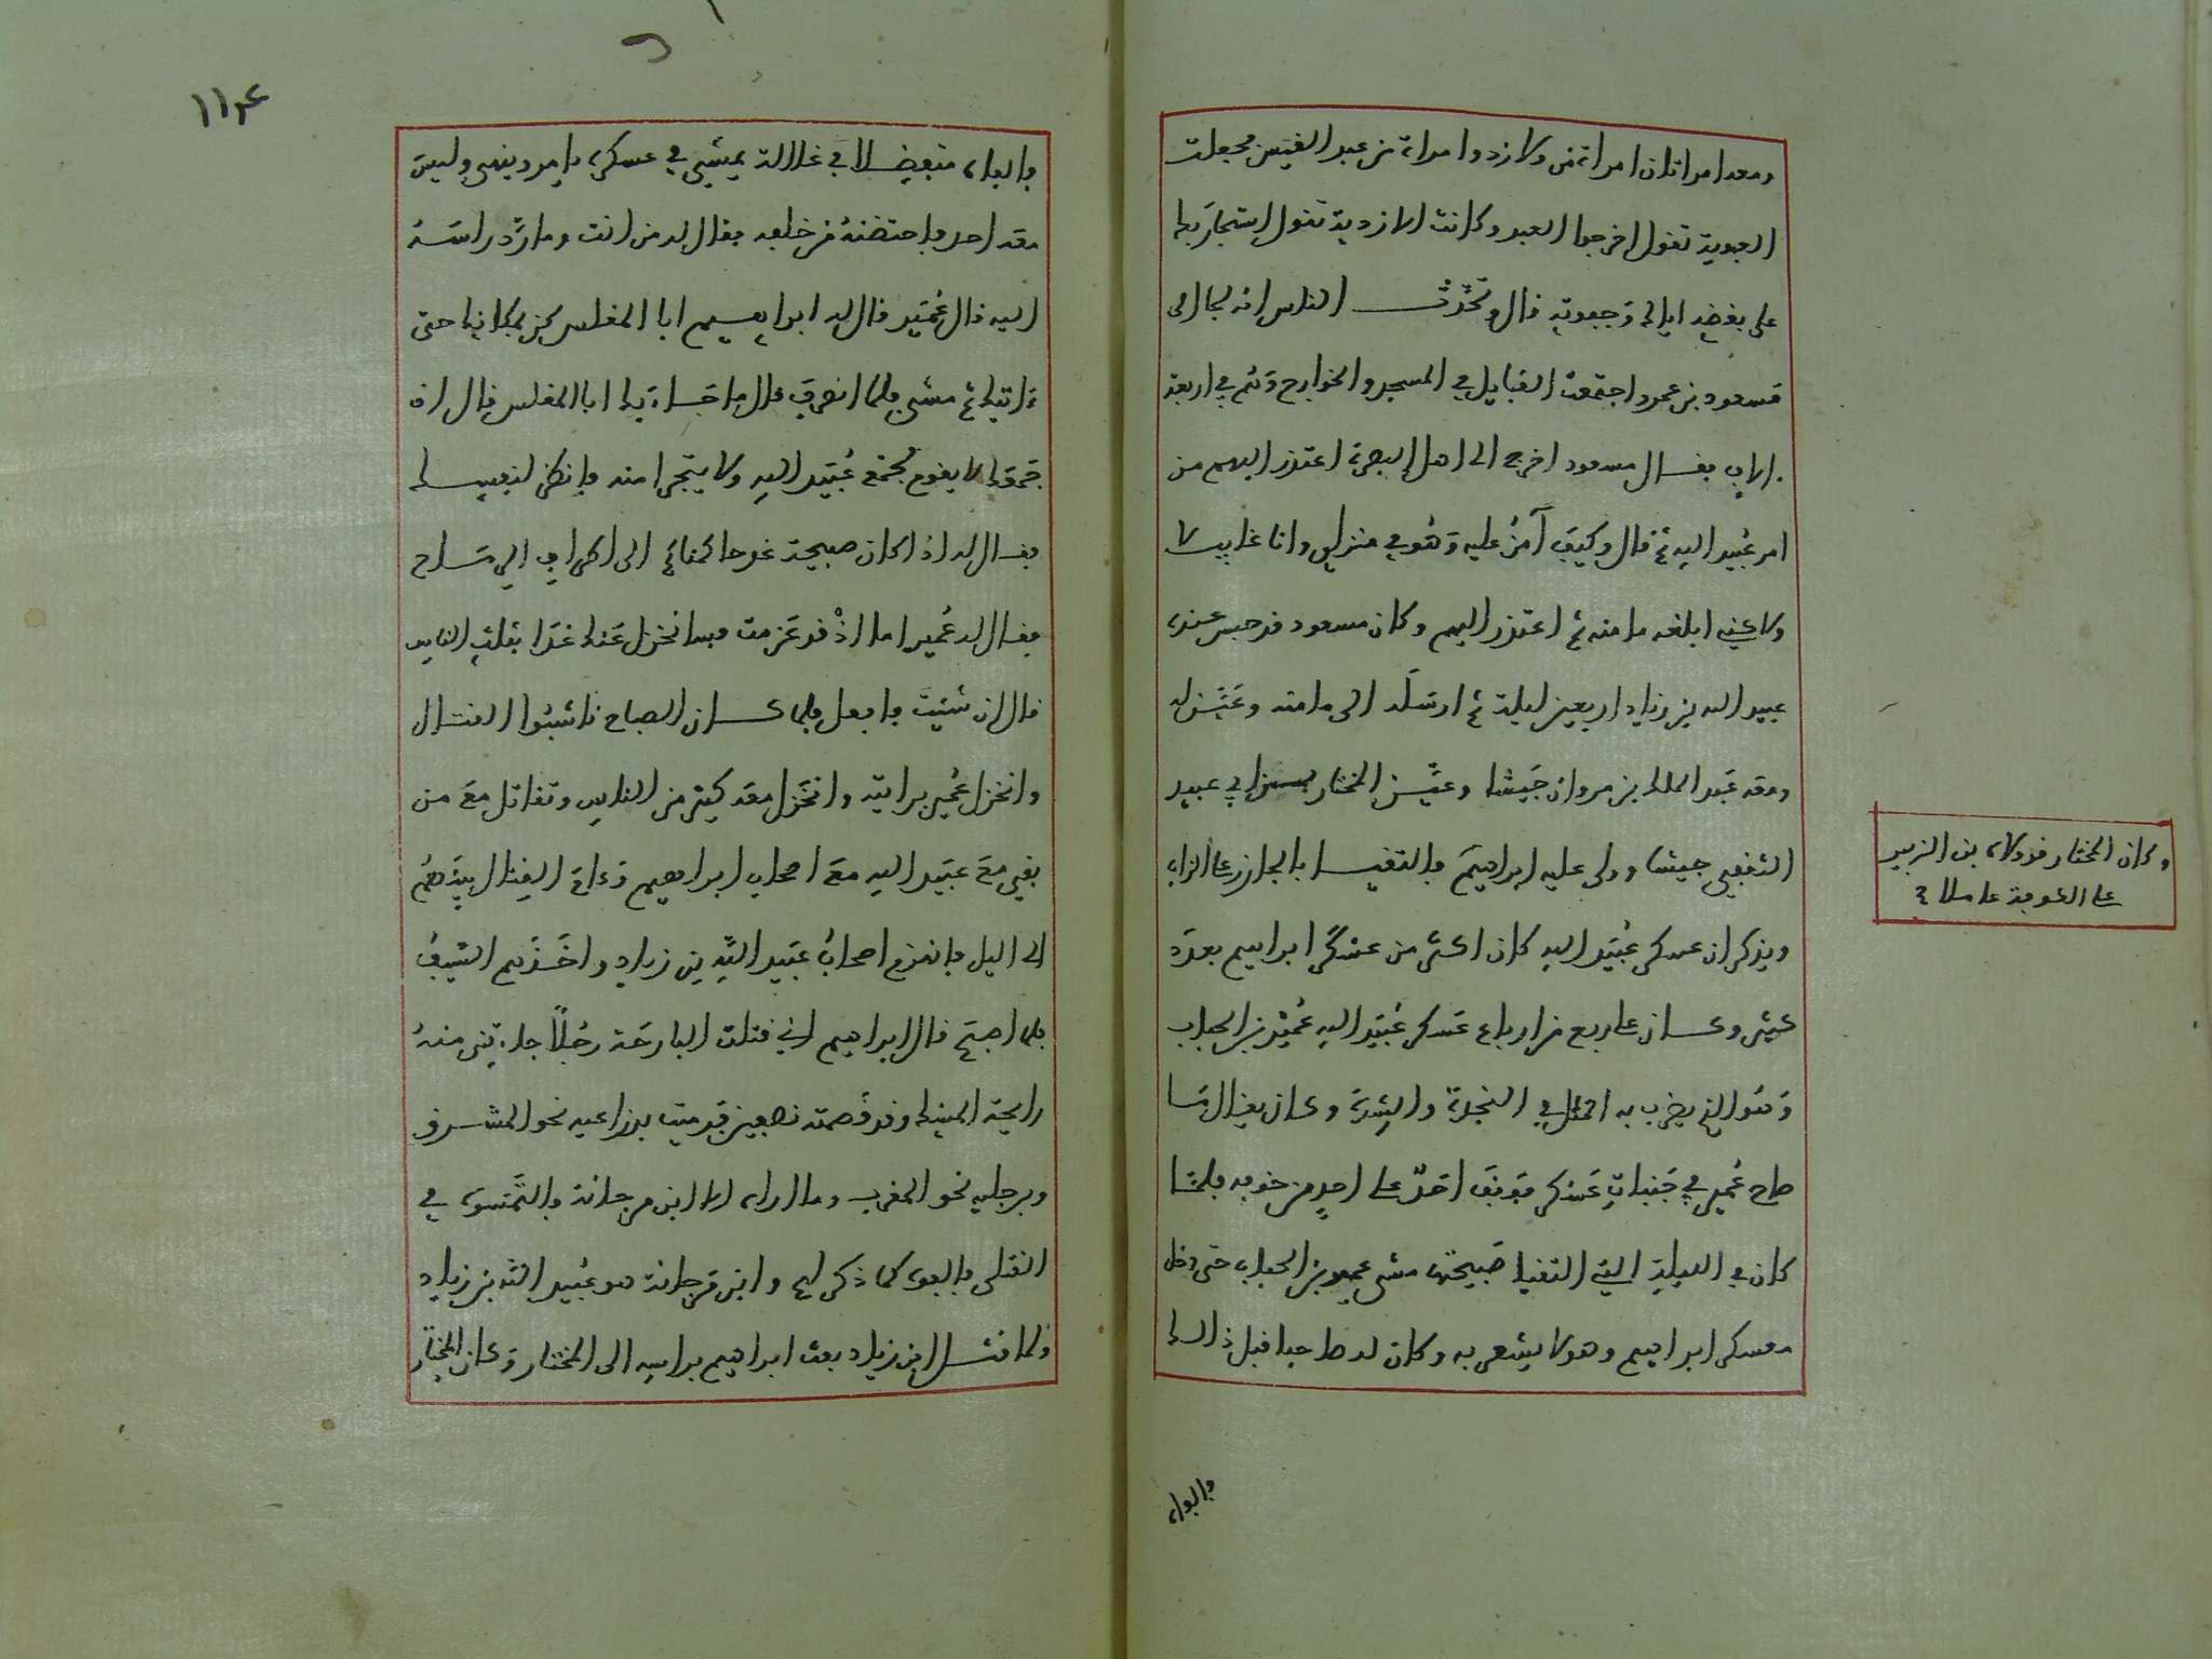 ومعه امراتان امراة من الازد وامراة من عبد القيس فجعلت
العبدية تقول اخرجوا العبد وكانت الازدية تقول استجار بك
على بغضه اياك وجفوته قال وتحدث الناس انه لجا الى
مسعود بن عمرو اجتمعت القبايل في المسجد والخوارج وهم في اربعة
الاف فقال مسعود اخرج الى اهل البصرة اعتذر اليهم من
امر عبيد الله ثم قال وكيف آمن عليه وهو في منزلي وانا غايب لا
ولاكني ابلغه مامنه ثم اعتذر اليهم وكان مسعود قد حبس عنده
عبيد الله بن زياد اربعين ليلة ثم ارسله الى مامنه وعين له
ومعه عبد الملك بن مروان جيشا وعين المختار بن ابي عبيد
الثقفي جيشا وولى عليه ابراهيم فالتقيا بالجازر على الزاب
ويذكر ان عسكر عبيد الله كان اكثر من عسكر ابراهيم بعدد
كثير وكان على ربع من ارباع عسكر عبيد الله عمير بن الحباب
وهو الذي يضرب به المثل في النجدة والشدة وكان يقال ما
صاح عمير في جنبات عسكر فوقف احد على احد من خوفه فلما
كان في الليلة التي التقيا صبيحتها مشى عمير بن الحباب حتى دخل
معسكر ابراهيم وهو لا يشعر به وكان له صاحبا قبل ذالك
فالفاه
وكان المختار قد ولاه بن الزبير
على الكوفة عاملا
١١٤
فالفاه متفضلا في غلالة يمشي في عسكره يامر وينهى وليس
معه احد فاحتضنه من خلفه فقال له من انت وما رد راسه
اليه قال عمير قال له ابراهيم ابا المغلس كن بمكانك حتى
ءاتيك ثم مشى فلما انصرف قال ما جاء بك ابا المغلس قال ان
جمعك لا يقوم لجمع عبيد الله ولا يتجزا منه فانظر لنفسك
فقال له اذا كان صبيحة غد حاكمناهم الى اطراف الرماح
فقال له عمير اما اذ قد عزمت فسانخزل عنك غدا بثلث الناس
قال ان شئت فافعل فلما كان الصباح ناشبوا القتال
وانخزل عمير برايته وانخزل معه كثير من الناس وتقاتل مع من
بقي مع عبيد الله مع اصحاب ابراهيم ودام القتال بينهم
الى اليل فانهزم اصحاب عبيد الله بن زياد واخذهم السيف
فلما اصبح قال ابراهيم اني قتلت البارحة رجلا جاءتني منه
رايحة المسك وقد قصمته نصفين فرميت بذراعيه نحو المشرق
وبرجليه نحو المغرب وما اراه الا ابن مرجانة فالتمسوه في
القتلى فالفوه كما ذكر لهم وابن مرجانة هو عبيد الله بن زياد
ولما قتل ابن زياد بعث ابراهيم براسه الى المختار وكان المختار